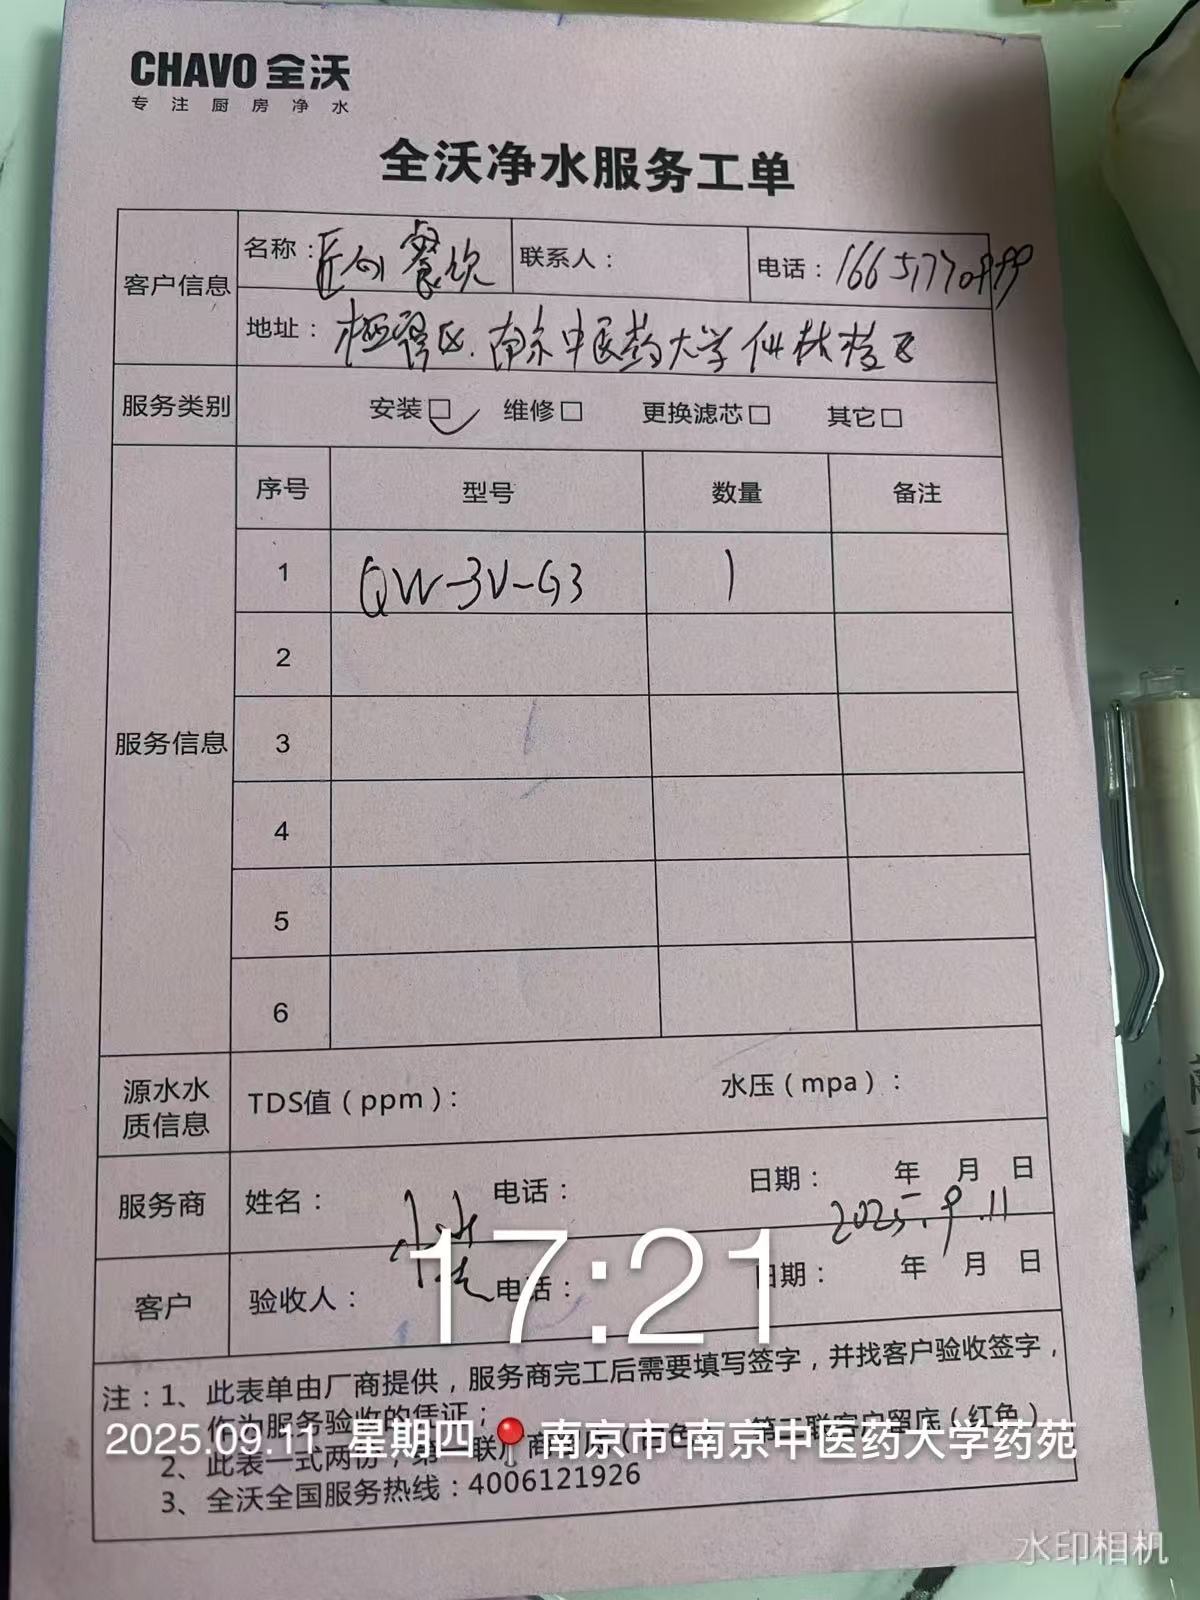 CHAVO 全沃
专注厨房净水
全沃净水服务工单
客户信息 名称：匠心餐饮 联系人： 电话：
地址：栖霞区.南京中医药大学仙林校区
服务类别 安装☐✓ 维修☐ 更换滤芯☐ 其它☐
服务信息 序号 型号 数量 备注
1 QW-3V-G3 1
2
3
4
5
6
源水水质信息 TDS值（ppm）： 水压（mpa）：
服务商 姓名： 电话： 日期： 年 月 日
2025.9.11
客户 验收人： 电话： 日期： 年 月 日
17:21
注：1、此表单由厂商提供，服务商完工后需要填写签字，并找客户验收签字，
作为服务验收的凭证；
2025.09.11 星期四 南京市·南京中医药大学药苑
2、此表一式两份，第一联厂商留底（白色），第二联客户留底（红色）
3、全沃全国服务热线：4006121926
水印相机